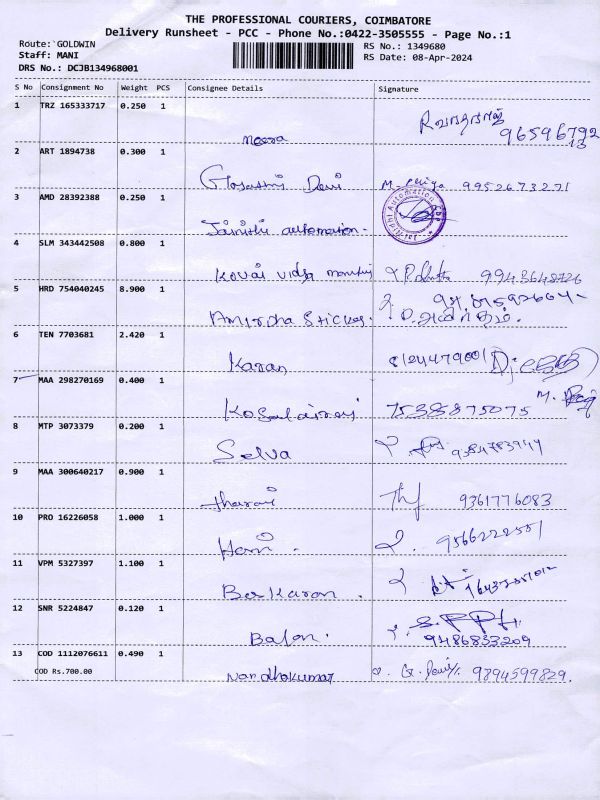 THE PROFESSIONAL COURIERS, COIMBATORE
Delivery Runsheet - PCC - Phone No.:0422-3505555 - Page No.:1
Route:`GOLDWIN
RS No.: 1349680
Staff: MANI
RS Date: 08-Apr-2024
DRS No.: DCJB134968001
S No Consignment No Weight PCS Consignee Details Signature
1 TRZ 165333717 0.250 1
meera
2 ART 1894738 0.300 1
Devi 9952673271
3 AMD 28392388 0.250 1
automation.
4 SLM 343442508 0.800 1
Kovai Vidya 9943648726
5 HRD 754040245 8.900 1
Amirtha Sticker.
6 TEN 7703681 2.420 1
Karan 8124479001
7 MAA 298270169 0.400 1
8 MTP 3073379 0.200 1
Selva 9384783944
9 MAA 300640217 0.900 1
tharani 9361776083
10 PRO 16226058 1.000 1
Hari . 9566222551
11 VPM 5327397 1.100 1
Baskaran .
12 SNR 5224847 0.120 1
9486833209
13 COD 1112076611 0.490 1
COD Rs.700.00
Nandhakumar 9894599829.